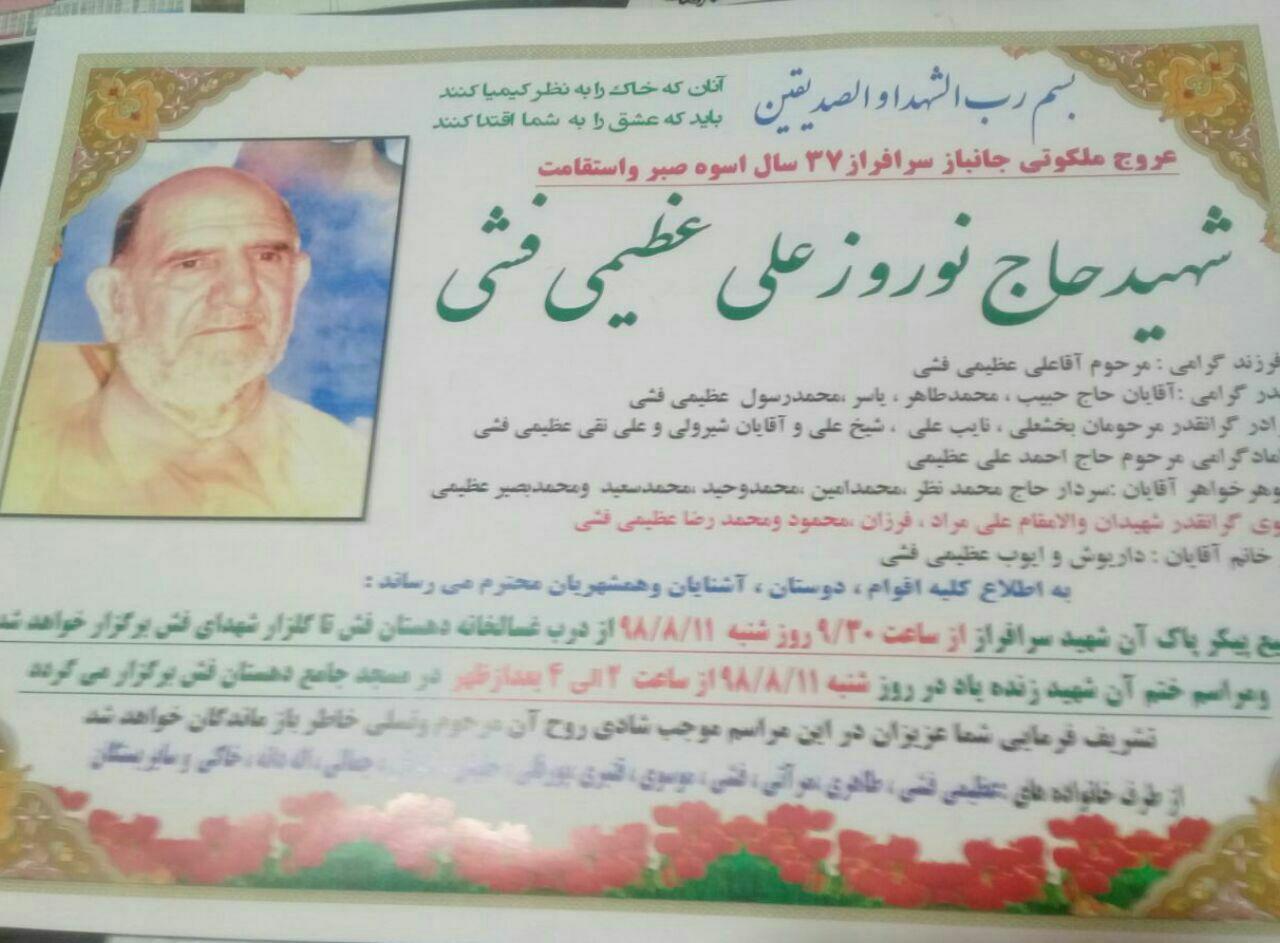 بسم رب الشهدا و الصدیقین
آنان که خاک را به نظر کیمیا کنند
باید که عشق را به شما اقتدا کنند
عروج ملکوتی جانباز سرافراز ۳۷ سال اسوه صبر واستقامت
شهید حاج نوروز علی عظیمی فشی
فرزند گرامی : مرحوم آقاعلی عظیمی فشی
در گرامی :آقایان حاج حبیب ، محمدطاهر ، یاسر ،محمدرسول عظیمی فشی
رادر گرانقدر مرحومان بخشعلی ، نایب علی ، شیخ علی و آقایان شیرولی و علی نقی عظیمی فشی
امادگرامی مرحوم حاج احمد علی عظیمی
وهرخواهر آقایان :سردار حاج محمد نظر ،محمدامین ،محمدوحید ،محمدسعید ومحمدبصیر عظیمی
وی گرانقدر شهیدان والامقام علی مراد ، فرزان ،محمود ومحمد رضا عظیمی فشی
خانم آقایان : داریوش و ایوب عظیمی فشی
به اطلاع کلیه اقوام ، دوستان ، آشنایان وهمشهریان محترم می رساند :
یع پیکر پاک آن شهید سرافراز از ساعت ۹/۳۰ روز شنبه ۹۸/۸/۱۱ از درب غسالخانه دهستان فش تا گلزار شهدای فش برگزار خواهد شد
ومراسم ختم آن شهید زنده یاد در روز شنبه ۹۸/۸/۱۱ از ساعت ۲ الی ۴ بعدازظهر در مسجد جامع دهستان فش برگزار می گردد
تشریف فرمایی شما عزیزان در این مراسم موجب شادی روح آن مرحوم وتسلی خاطر باز ماندگان خواهد شد
از طرف خانواده های :عظیمی فشی ، طاهری ،مرآتی ، فشی ، موسوی ، قنبری ، جمالی ، خاکی و سایر بستگان